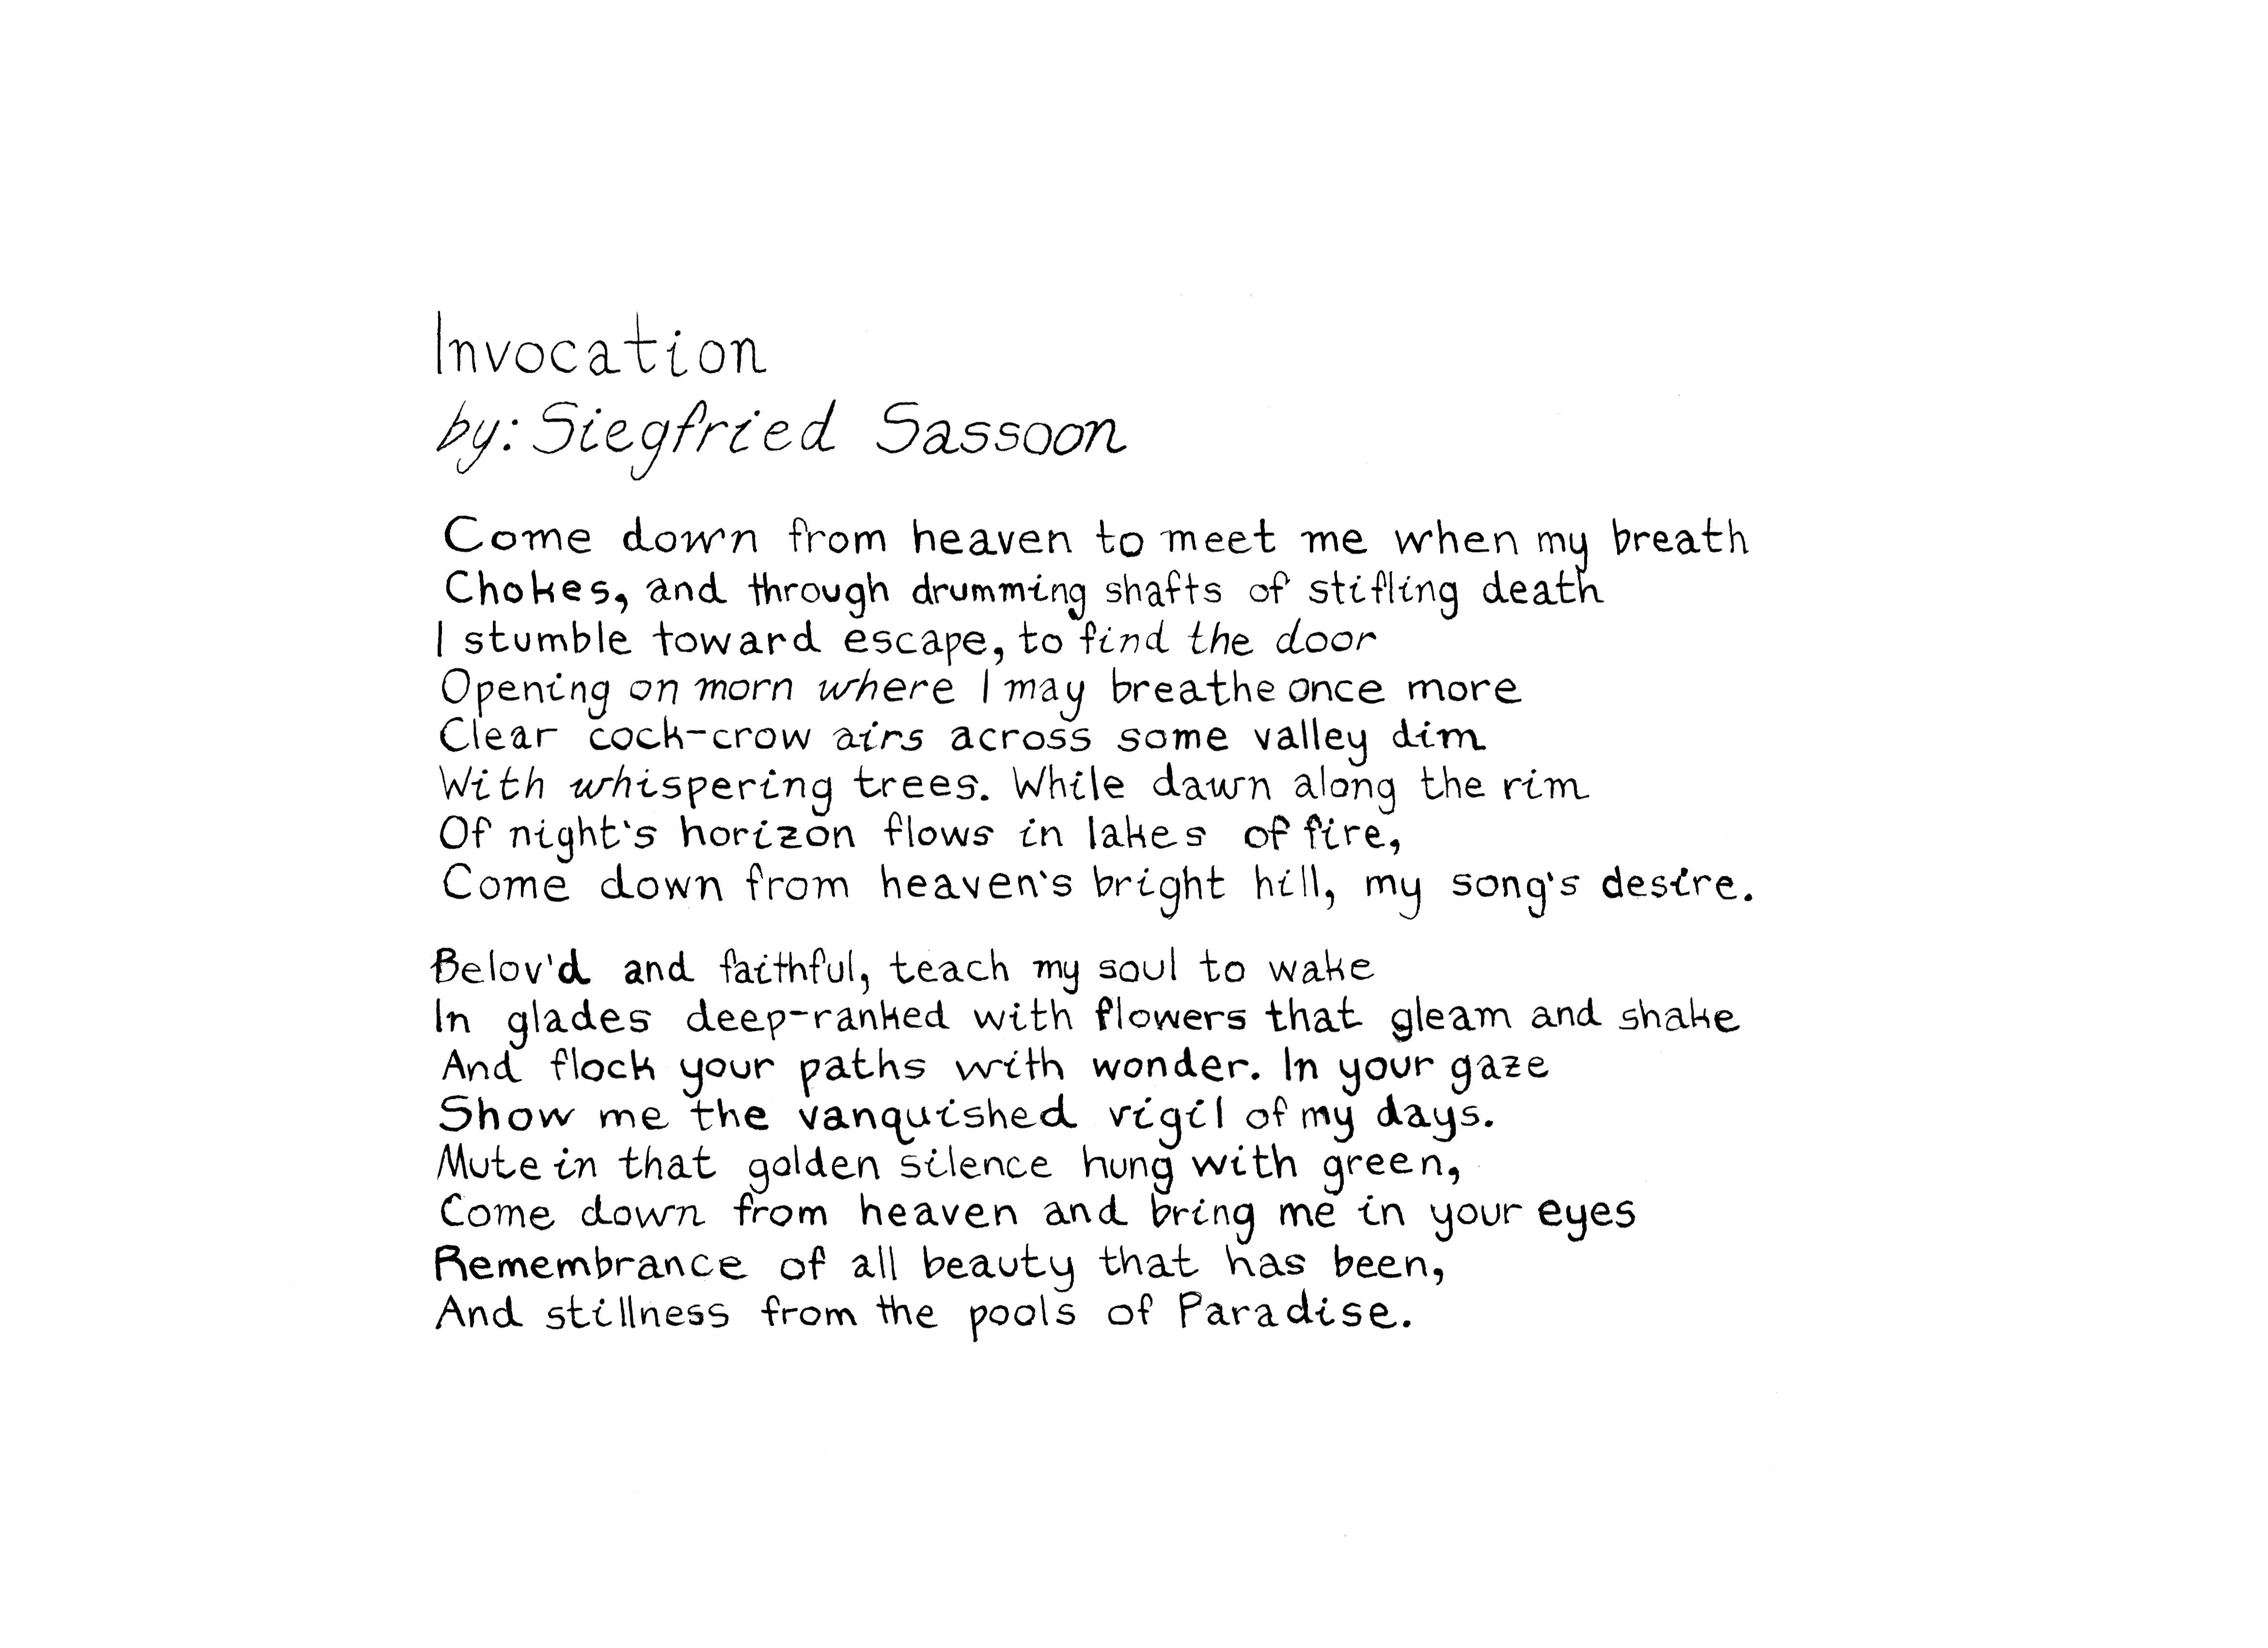 Invocation
by: Siegfried Sassoon
Come down from heaven to meet me when my breath
Chokes, and through drumming shafts of stifling death
I stumble toward escape, to find the door
Opening on morn where I may breathe once more
Clear cock-crow airs across some valley dim
With whispering trees. While dawn along the rim
Of night's horizon flows in lakes of fire,
Come down from heaven's bright hill, my song's desire.
Belov'd and faithful, teach my soul to wake
In glades deep-ranked with flowers that gleam and shake
And flock your paths with wonder. In your gaze
Show me the vanquished vigil of my days.
Mute in that golden silence hung with green,
Come down from heaven and bring me in your eyes
Remembrance of all beauty that has been,
And stillness from the pools of Paradise.